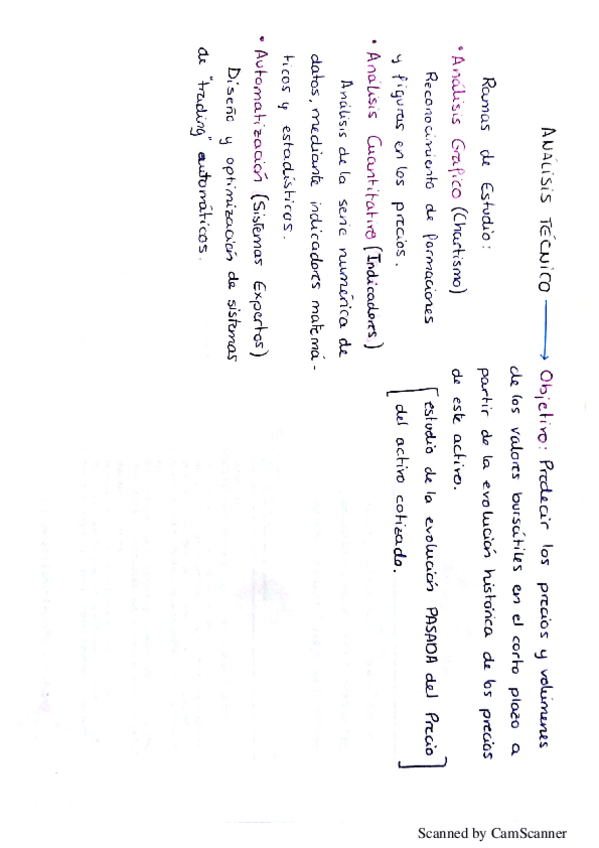 ANÁLISIS TÉCNICO → Objetivo: Predecir los precios y volúmenes
de los valores bursátiles en el corto plazo a
partir de la evolución histórica de los precios
de este activo.
[estudio de la evolución PASADA del Precio
del activo cotizado.]
Ramas de Estudio:
• Análisis Gráfico (Chartismo)
Reconocimiento de formaciones
y figuras en los precios.
• Análisis Cuantitativo (Indicadores)
Análisis de la serie numérica de
datos, mediante indicadores matemá-
ticos y estadísticos.
• Automatización (Sistemas Expertos)
Diseño y optimización de sistemas
de "trading" automáticos.
Scanned by CamScanner